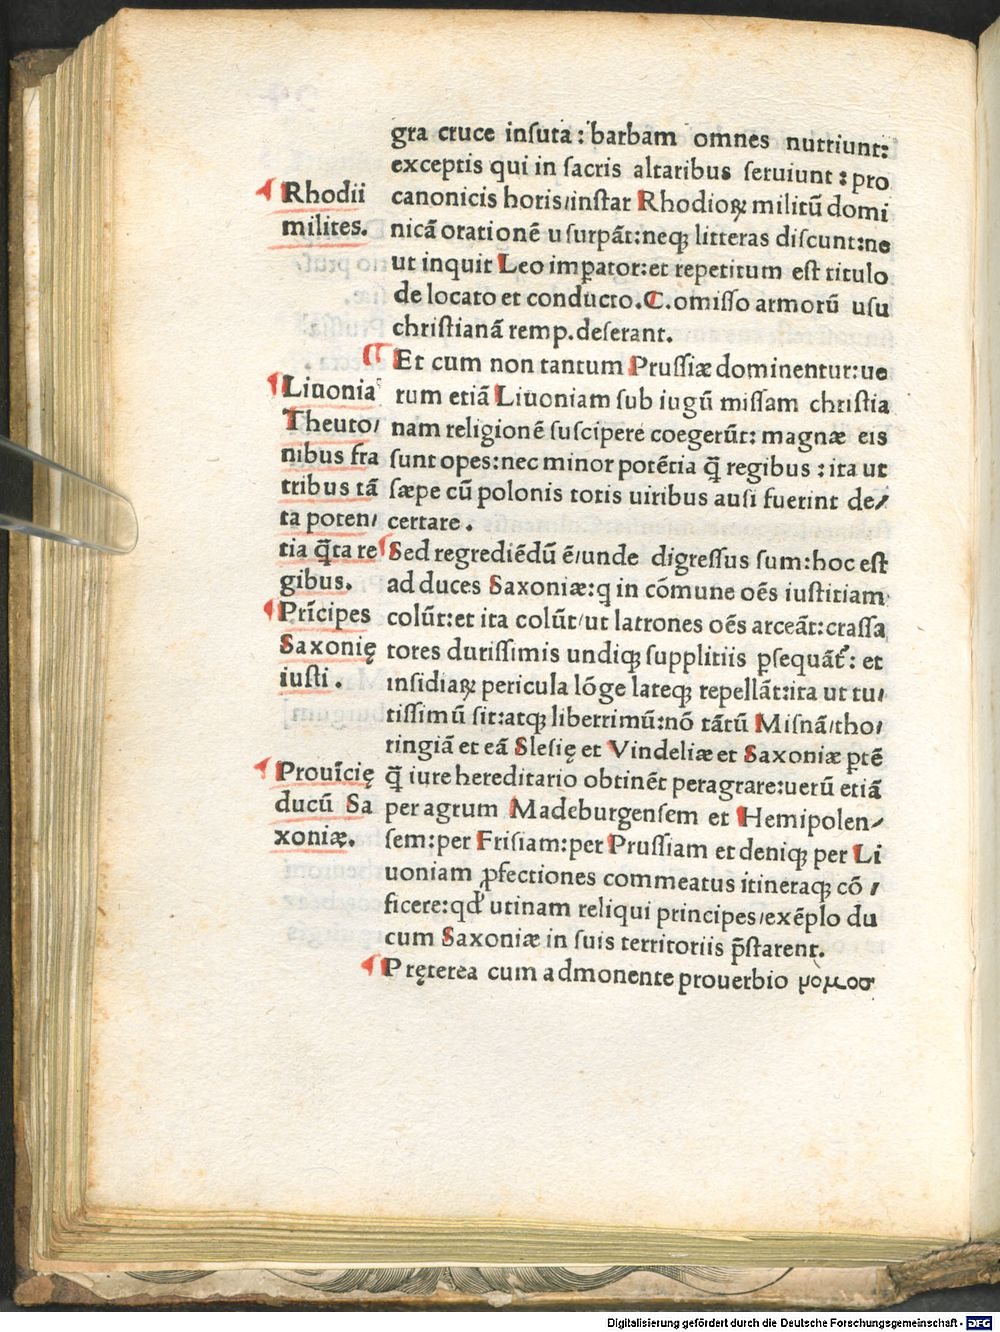 gra cruce insuta: barbam omnes nutriunt:
exceptis qui in sacris altaribus seruiunt: pro
canonicis horis/instar Rhodioꝝ militū domi
nicā orationē usurpāt:neqꝫ litteras discunt:ne
ut inquit Leo imꝑator:et repetitum est titulo
de locato et conducto.C.omisso armorū usu
christianā remp.deserant.
¶ Et cum non tantum Prussiæ dominentur:ue
rum etiā Liuoniam sub iugū missam christia
nam religionē suscipere coegerūt: magnæ eis
sunt opes:nec minor potētia q̄ regibus : ita ut
sæpe cū polonis totis uiribus ausi fuerint de/
certare.
¶ Sed regrediēdū ē/unde digressus sum:hoc est
ad duces Saxoniæ:q in cōmune oēs iustitiam
colūt:et ita colūt/ut latrones oēs arceāt:crassa
tores durissimis undiqꝫ supplitiis ꝑsequāt᷑: et
insidiaꝝ pericula lōge lateqꝫ repellāt:ita ut tu/
tissimū sit:atqꝫ liberrimū:nō tātū Misnā/tho/
ringiā et eā Slesię et Vindeliæ et Saxoniæ ptē
q̄ iure hereditario obtinēt peragrare:uerū etiā
per agrum Madeburgensem et Hemipolen/
sem:per Frisiam:per Prussiam et deniqꝫ per Li
uoniam ꝓfectiones commeatus itineraqꝫ cō/
ficere:qd' utinam reliqui principes/exēplo du
cum Saxoniæ in suis territoriis p̄starent.
¶ Pręterea cum admonente prouerbio μομοσ
¶ Rhodii
milites.
¶ Liuonia
Theuto/
nibus fra
tribus tā
ta poten/
tia q̄ta re
gibus.
¶ Prīcipes
Saxonię
iusti.
¶ Prouīcię
ducū Sa
xoniæ.
Digitalisierung gefördert durch die Deutsche Forschungsgemeinschaft - DFG